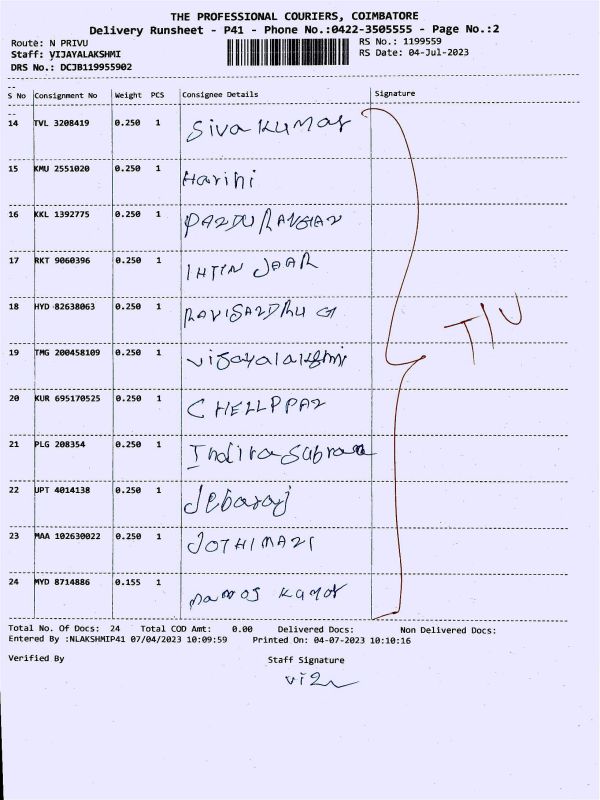 THE PROFESSIONAL COURIERS, COIMBATORE
Delivery Runsheet - P41 - Phone No.:0422-3505555 - Page No.:2
Route: N PRIVU
RS No.: 1199559
Staff: VIJAYALAKSHMI
RS Date: 04-Jul-2023
DRS No.: DCJB119955902
S No Consignment No Weight PCS Consignee Details Signature
14 TVL 3208419 0.250 1 Siva Kumar
15 KMU 2551020 0.250 1 Harini
16 KKL 1392775 0.250 1 PANDURANGAN
17 RKT 9060396 0.250 1
18 HYD 82638063 0.250 1 G
T/U
19 TMG 200458109 0.250 1 Vijayalakshmi
20 KUR 695170525 0.250 1 CHELLPPAN
21 PLG 208354 0.250 1 Indira
22 UPT 4014138 0.250 1 Jebaraj
23 MAA 102630022 0.250 1 JOTHIMANI
24 MYD 8714886 0.155 1 Kumar
Total No. Of Docs: 24 Total COD Amt: 0.00 Delivered Docs: Non Delivered Docs:
Entered By :NLAKSHMIP41 07/04/2023 10:09:59 Printed On: 04-07-2023 10:10:16
Verified By Staff Signature